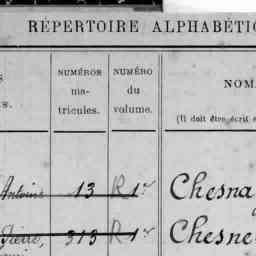 RÉPERTOIRE ALPHABÉTI
s NUMÉROS NUMÉRO NOM
ma- du
s. tricules. volume. (Il doit être écrit
Antoine 13 R 1er Chesna
Pierre, 313 R 1er Chesne